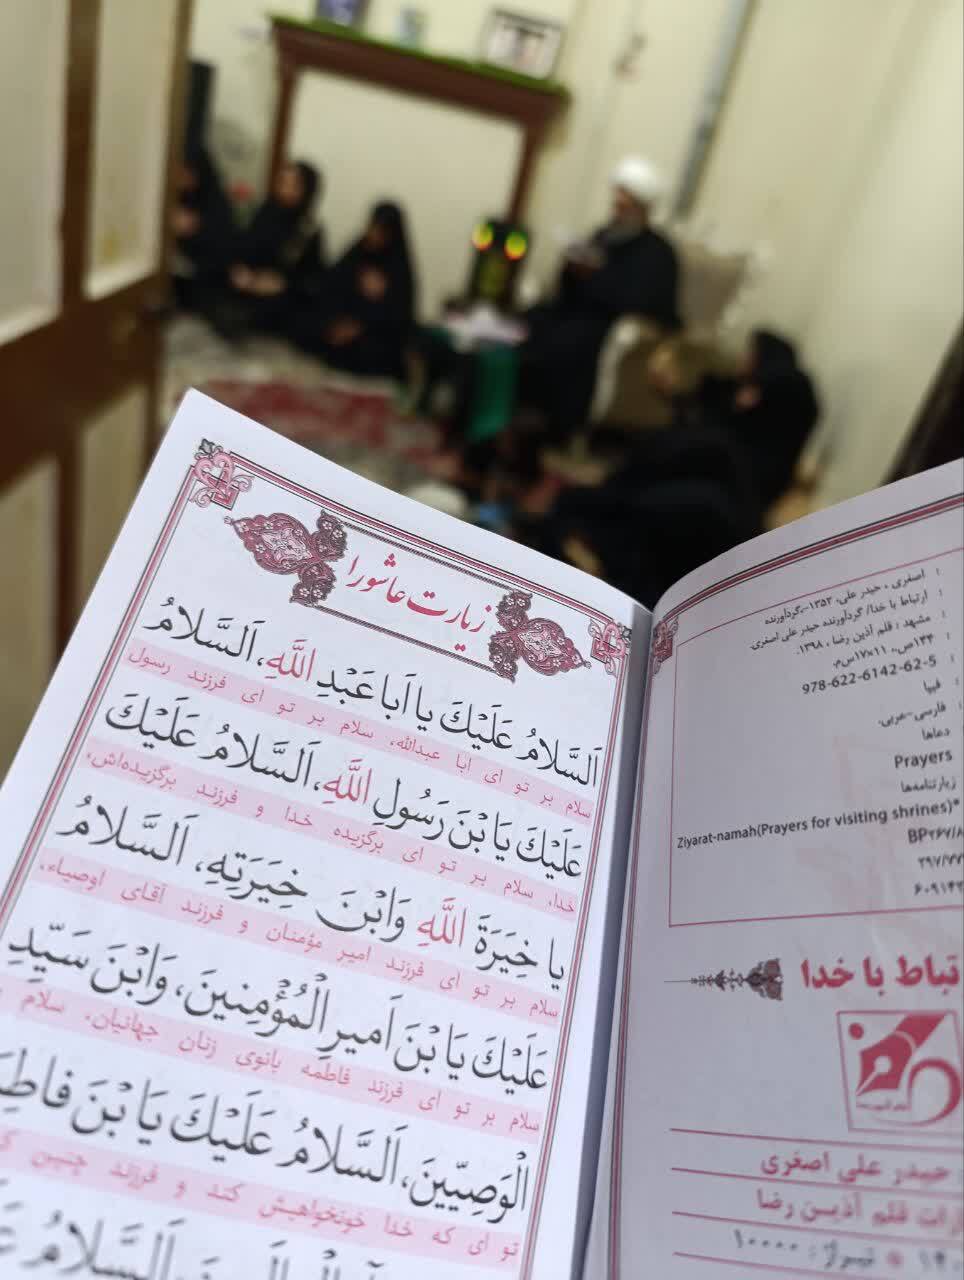 زیارت عاشورا
اَلسَّلامُ عَلَيْكَ يا اَبا عَبْدِ اللَّهِ، اَلسَّلامُ
سلام بر تو ای ابا عبدالله، سلام بر تو ای فرزند رسول
عَلَيْكَ يَا بْنَ رَسُولِ اللَّهِ، اَلسَّلامُ عَلَيْكَ
خدا، سلام بر تو ای برگزیده خدا و فرزند برگزیده‌اش،
يا خِيَرَةَ اللَّهِ وَابْنَ خِيَرَتِهِ، اَلسَّلامُ
سلام بر تو ای فرزند امیر مؤمنان و فرزند آقای اوصیاء،
عَلَيْكَ يَا بْنَ اَميرِ الْمُؤْمِنينَ، وَابْنَ سَيِّدِ
سلام بر تو ای فرزند فاطمه بانوی زنان جهانیان، سلام
الْوَصِيّينَ، اَلسَّلامُ عَلَيْكَ يَا بْنَ فاطِمَ
تو ای که خدا خونخواهیش کند و فرزند چنین
اَلسَّلامُ
اصغری، حیدر علی، ۱۳۵۲-، گردآورنده
ارتباط با خدا/ گردآورنده حیدر علی اصغری
مشهد : قلم آذین رضا ، ۱۳۹۸.
۱۴۴ص.، ۱۱×۱۷س‌م.
978-622-6142-62-5
فیپا
فارسی-عربی.
دعاها
Prayers
زیارتنامه‌ها
Ziyarat-namah(Prayers for visiting shrines)*
BP۲۶۷/۸
۲۹۷/۷۷
۶۰۹۱۴۲
تباط با خدا
حیدر علی اصغری
رات قلم آذین رضا
۱۴۰ * تیراژ : ۱۰۰۰۰